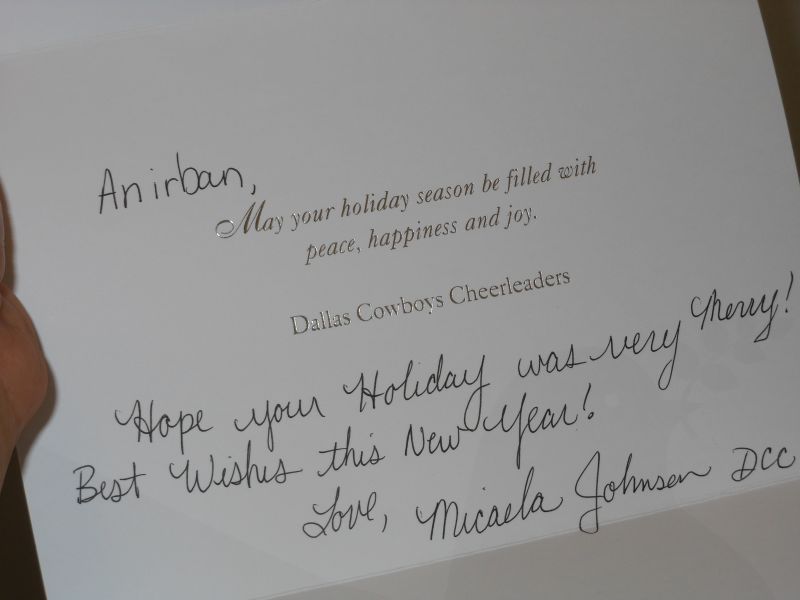 Anirban,
May your holiday season be filled with
peace, happiness and joy.
Dallas Cowboys Cheerleaders
Hope your Holiday was very Merry!
Best Wishes this New Year!
Love, Micaela Johnsen DCC